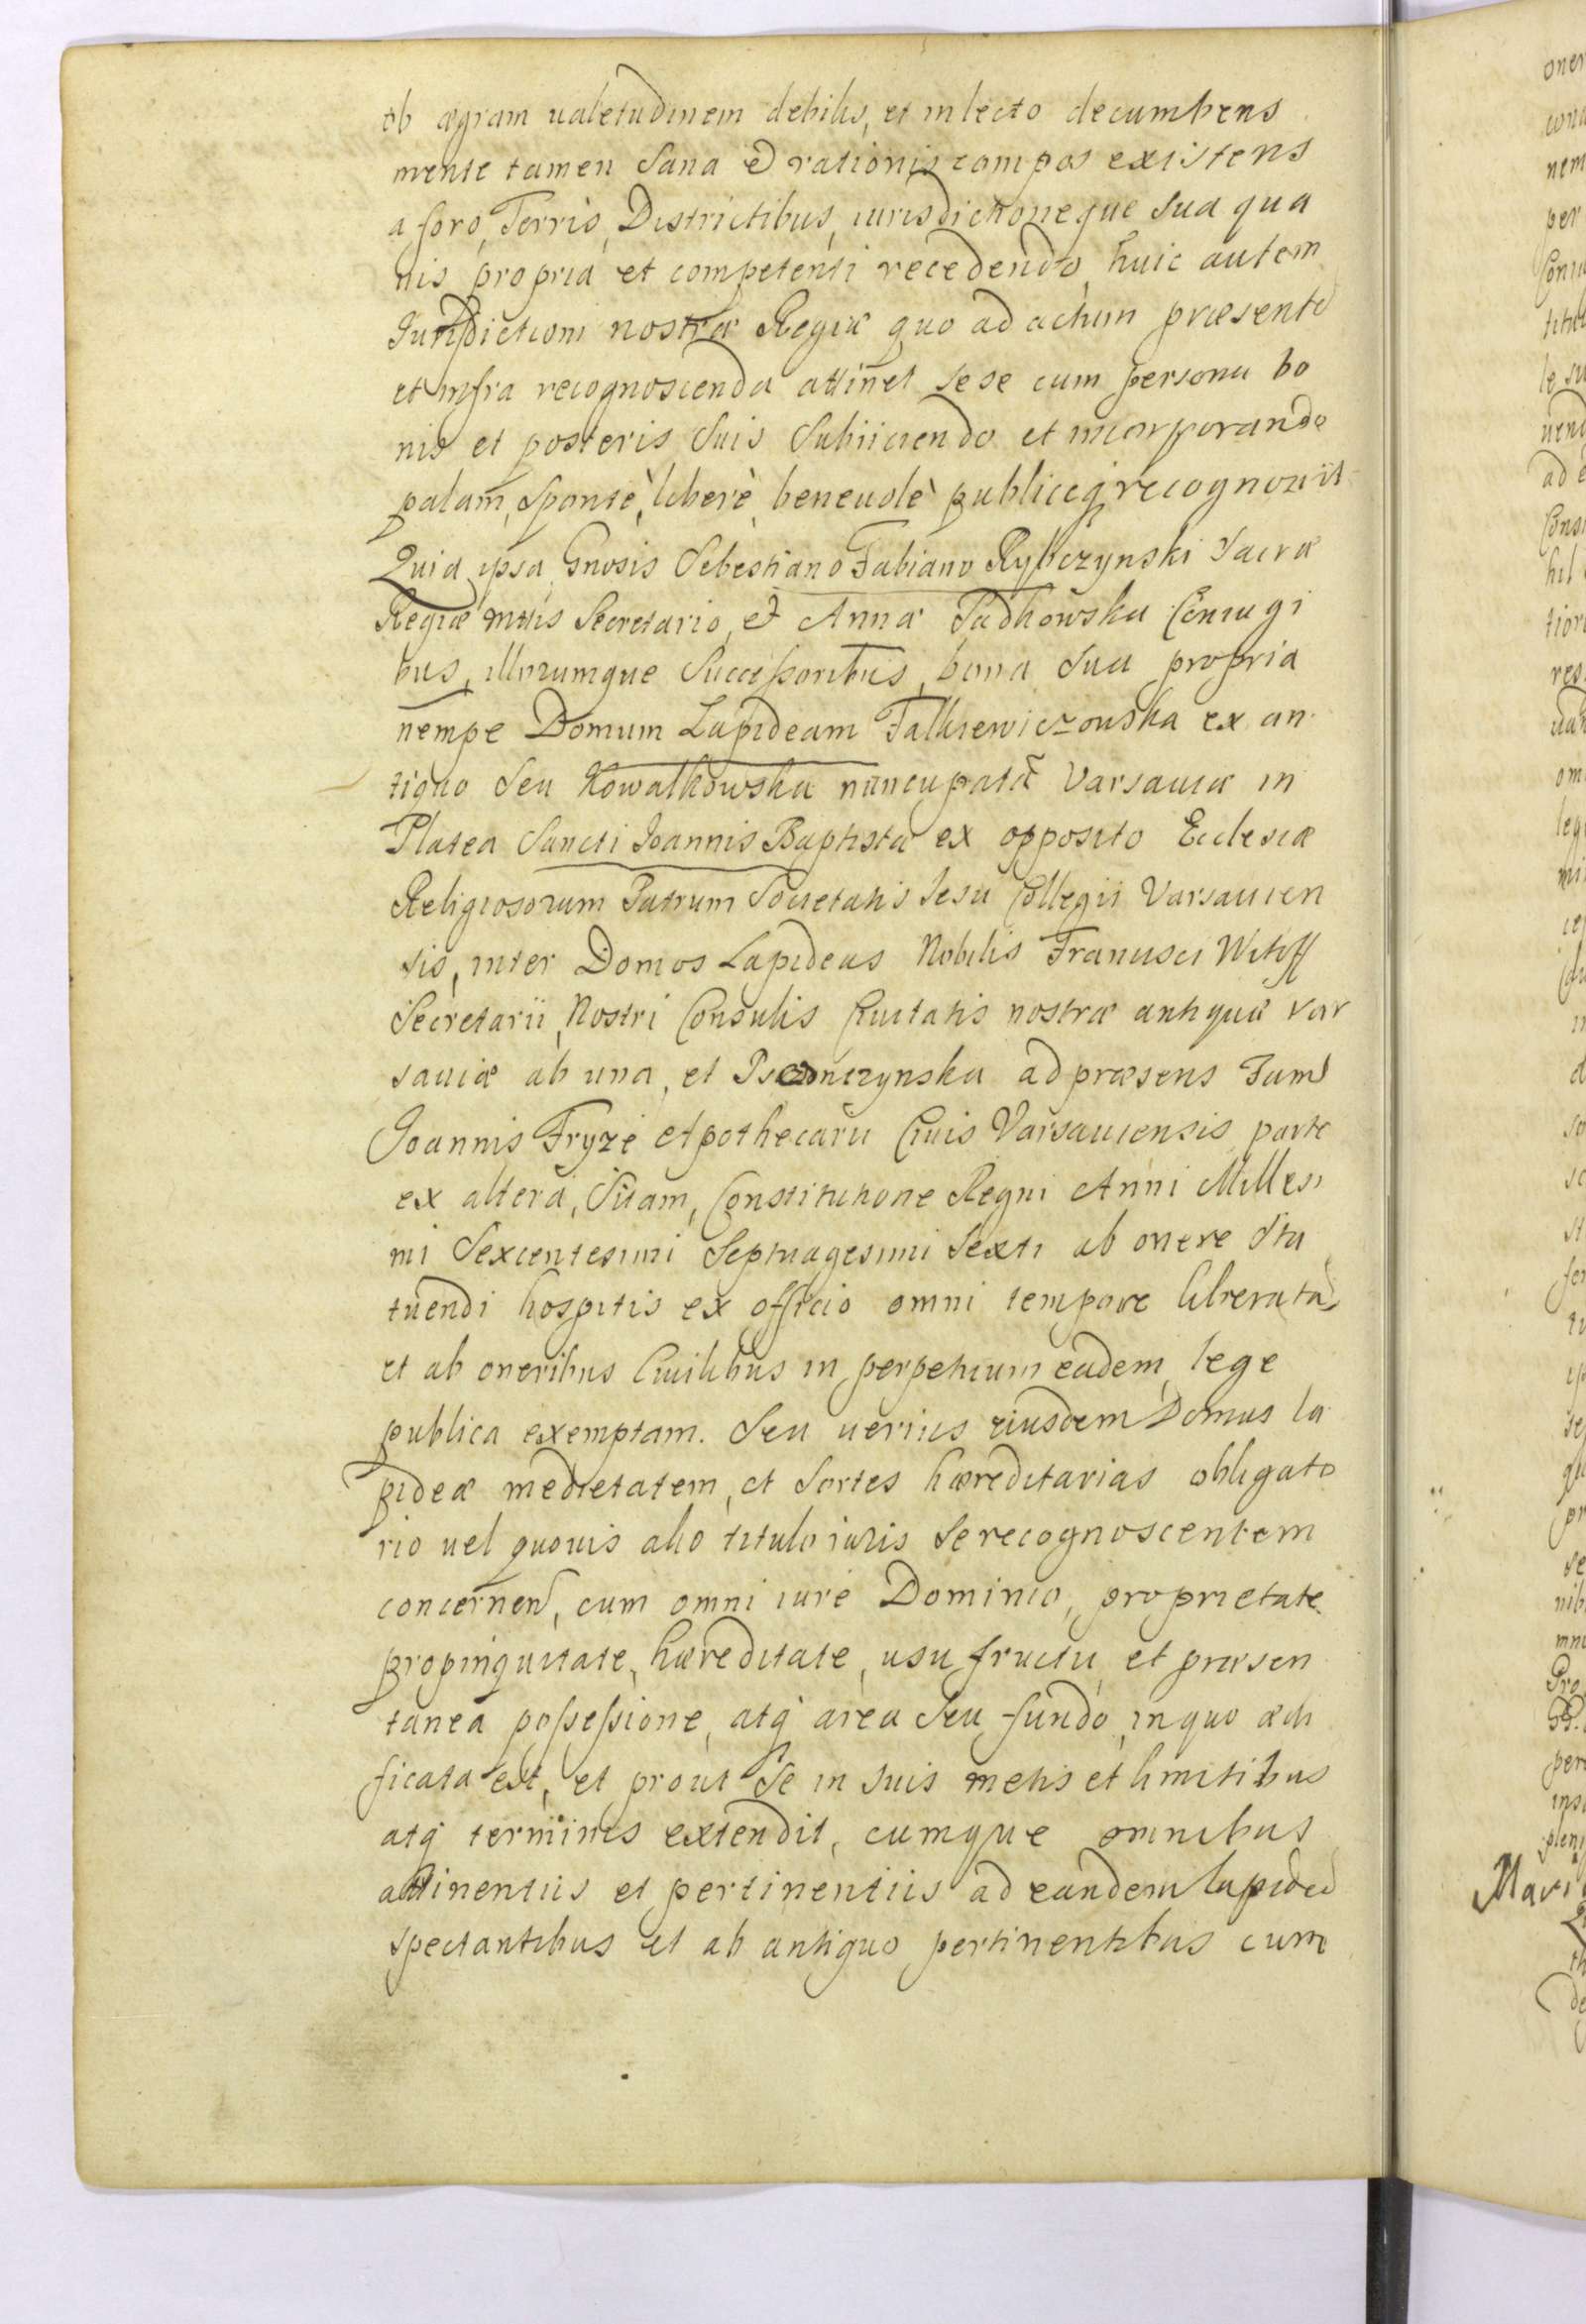 ob ægram ualetudinem debilis, et in lecto decumbens
mente tamen Sana et rationis compos existens
a foro, Terris, Districtibus, iurisdictioneque sua qua
uis propria et competenti recedendo, huic autem
Jurisdictioni nostræ Regiæ quo ad actum præsente
et infra recognoscenda attinet sese cum persona bo
nis et posteris Suis Subiiciendo et incorporando
palam, Sponte, libere, beneuole publiceq recognouit
Quia ipsa Gnosis Sebestiano Fabiano Rybczynski Sacræ
Regiæ mttis Secretario, et Annæ Coniugi
bus, illorumque Successoribus, bona Sua propria
nempe Domum Lapideam Falkiewiczouska ex an
tiquo Seu Kowalkowska nuncupatã Varsauiæ in
Platea Sancti Joannis Baptistæ ex opposito Ecclesiæ
Religiosorum Patrum Societatis Jesu Collegii Varsauien
sis, inter Domos Lapideas Nobilis Francisci Witthoff
Secretarii Nostri Consulis Ciuitatis nostræ antiquæ Var
sauiæ ab una, et ad præsens Fam
Joannis Fryze Apothecarii Ciuis Varsauiensis parte
ex altera, Sitam, Constitutione Regni Anni Millesi
mi Sexcentesimi Septuagesimi Sexti ab onere Sta
tuendi hospitis ex officio omni tempore liberatã
et ab oneribus Ciuilibus in perpetuum eadem lege
publica exemptam. Seu uerius eiusdem Domus la
pideæ medietatem, et Sortes hæreditarias obligato
rio uel quouis alio titulo iuris Se recognoscentem
concernen, cum omni iure Dominio, proprietate
propinquitate, hæreditate, usu fructu et præsen
tanea possessione, atq area Seu fundo, in quo ædi
ficata est, et prout Se in suis metis et limitibus
atq terminis extendit, cumque omnibus
attinentiis et pertinentiis ad eandem lapideã
spectantibus et ab antiquo pertinentibus cum